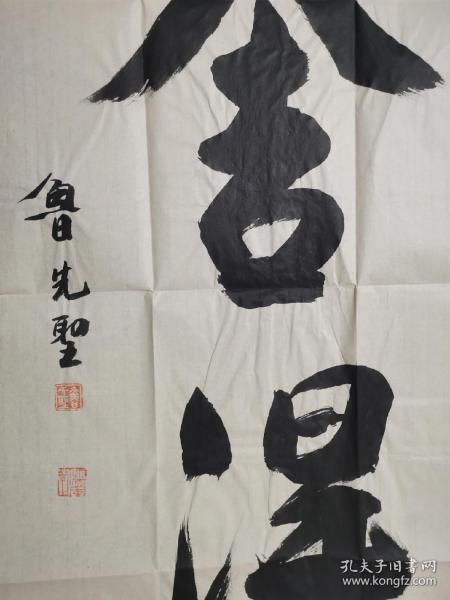 舍
魯先聖
孔夫子旧书网
www.kongfz.com